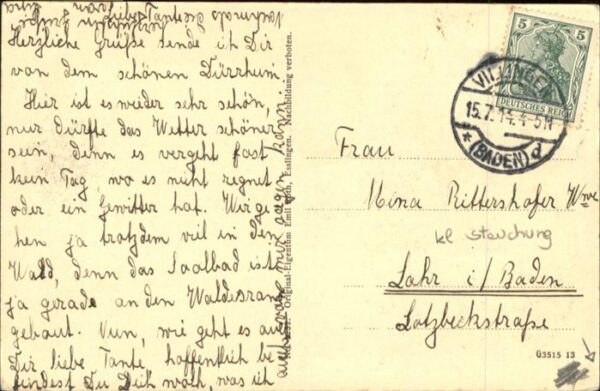 Herzliche Grüße sende ich Dir
von dem schönen Dürrheim.
Hier ist es wieder sehr schön,
nur dürfte das Wetter schöner
sein, denn es vergeht fast
kein Tag, wo es nicht regnet
oder ein Gewitter hat. Wir ge-
hen ja trotzdem viel in den
Wald, denn das Soolbad ist
ja gerade an den Waldesrand
gebaut. Nun, wie geht es auch
Dir liebe Tante, hoffentlich be-
findest Du Dich wohl, was ich
auch von mir sagen kann.
Original-Eigentum Emil Esslingen. Nachbildung verboten.
5 5
DEUTSCHES REICH
VILLINGEN
15.7.14.4-5N
* (BADEN) d
Frau
Mina Rittershofer Wwe
kl stauchung
Lahr i/Baden
Lotzbeckstraße
G3515 13